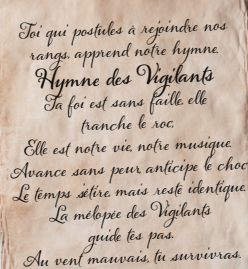 Toi qui postules à rejoindre nos
rangs, apprend notre hymne.
Hymne des Vigilants
Ta foi est sans faille, elle
tranche le roc,
Elle est notre vie, notre musique.
Avance sans peur, anticipe le choc
Le temps s'étire, mais reste identique.
La mélopée des Vigilants
guide tes pas.
Au vent mauvais, tu survivras.